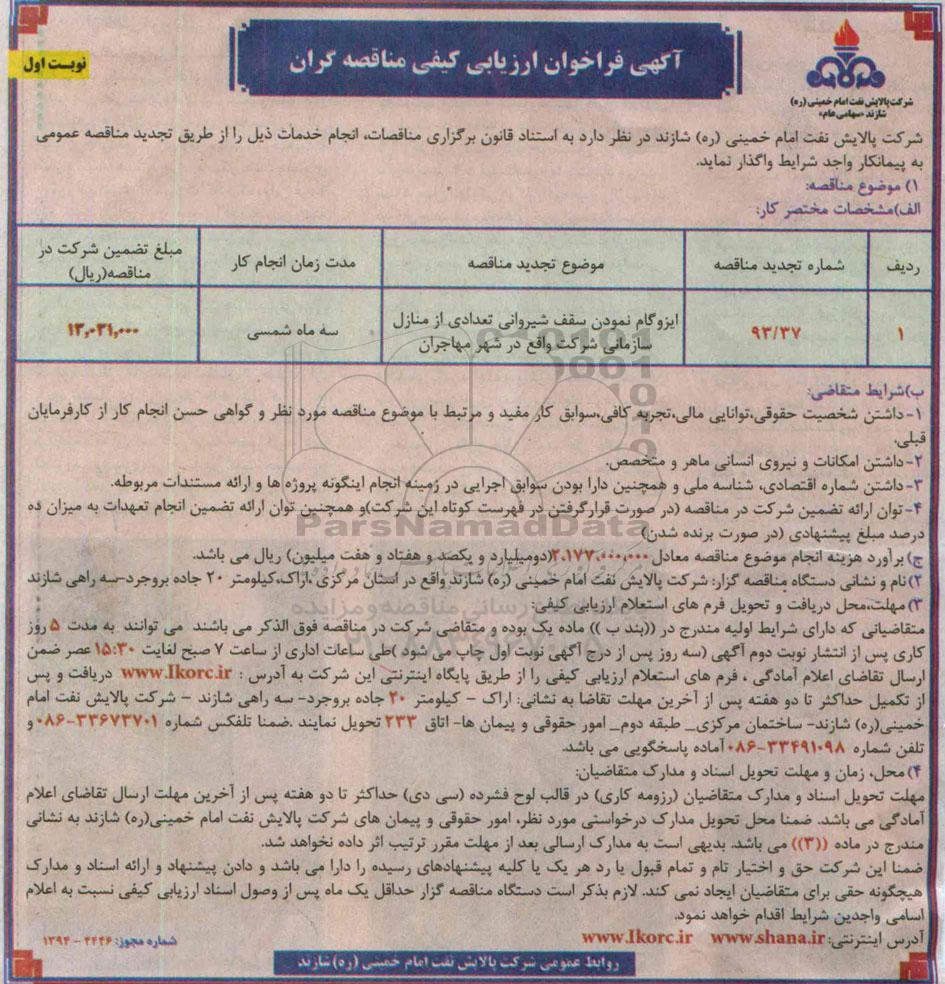 آگهی فراخوان ارزیابی کیفی مناقصه گران
نوبت اول
شرکت پالایش نفت امام خمینی (ره)
شازند «سهامی عام»
شرکت پالایش نفت امام خمینی (ره) شازند در نظر دارد به استناد قانون برگزاری مناقصات، انجام خدمات ذیل را از طریق تجدید مناقصه عمومی
به پیمانکار واجد شرایط واگذار نماید.
۱) موضوع مناقصه:
الف)مشخصات مختصر کار:
ردیف شماره تجدید مناقصه موضوع تجدید مناقصه مدت زمان انجام کار مبلغ تضمین شرکت در
مناقصه(ریال)
۱ ۹۳/۳۷ ایزوگام نمودن سقف شیروانی تعدادی از منازل سه ماه شمسی ۱۳,۰۳۱,۰۰۰
سازمانی شرکت واقع در شهر مهاجران
ب)شرایط متقاضی:
۱-داشتن شخصیت حقوقی،توانایی مالی،تجربه کافی،سوابق کار مفید و مرتبط با موضوع مناقصه مورد نظر و گواهی حسن انجام کار از کارفرمایان
قبلی.
۲-داشتن امکانات و نیروی انسانی ماهر و متخصص.
۳-داشتن شماره اقتصادی، شناسه ملی و همچنین دارا بودن سوابق اجرایی در زمینه انجام اینگونه پروژه ها و ارائه مستندات مربوطه.
۴-توان ارائه تضمین شرکت در مناقصه (در صورت قرارگرفتن در فهرست کوتاه این شرکت)و همچنین توان ارائه تضمین انجام تعهدات به میزان ده
درصد مبلغ پیشنهادی (در صورت برنده شدن)
ParsNamadData
ج)برآورد هزینه انجام موضوع مناقصه معادل ۲،۱۷۷،۰۰۰،۰۰۰(دومیلیارد و یکصد و هفتاد و هفت میلیون) ریال می باشد.
۲)نام و نشانی دستگاه مناقصه گزار: شرکت پالایش نفت امام خمینی (ره) شازند واقع در استان مرکزی ،اراک،کیلومتر ۲۰ جاده بروجرد-سه راهی شازند
۳)مهلت،محل دریافت و تحویل فرم های استعلام ارزیابی کیفی:
متقاضیانی که دارای شرایط اولیه مندرج در ((بند ب )) ماده یک بوده و متقاضی شرکت در مناقصه فوق الذکر می باشند می توانند به مدت ۵ روز
کاری پس از انتشار نوبت دوم آگهی (سه روز پس از درج آگهی نوبت اول چاپ می شود )طی ساعات اداری از ساعت ۷ صبح لغایت ۱۵:۳۰ عصر ضمن
ارسال تقاضای اعلام آمادگی ، فرم های استعلام ارزیابی کیفی را از طریق پایگاه اینترنتی این شرکت به آدرس : www.Ikorc.ir دریافت و پس
از تکمیل حداکثر تا دو هفته پس از آخرین مهلت تقاضا به نشانی: اراک - کیلومتر ۲۰ جاده بروجرد- سه راهی شازند - شرکت پالایش نفت امام
خمینی(ره) شازند- ساختمان مرکزی_ طبقه دوم_ امور حقوقی و پیمان ها- اتاق ۲۳۳ تحویل نمایند .ضمنا تلفکس شماره ۳۳۶۷۳۷۰۱-۰۸۶ و
تلفن شماره ۳۳۴۹۱۰۹۸-۰۸۶ آماده پاسخگویی می باشد.
۴)محل، زمان و مهلت تحویل اسناد و مدارک متقاضیان:
مهلت تحویل اسناد و مدارک متقاضیان (رزومه کاری) در قالب لوح فشرده (سی دی) حداکثر تا دو هفته پس از آخرین مهلت ارسال تقاضای اعلام
آمادگی می باشد. ضمنا محل تحویل مدارک درخواستی مورد نظر، امور حقوقی و پیمان های شرکت پالایش نفت امام خمینی(ره) شازند به نشانی
مندرج در ماده ((۳)) می باشد. بدیهی است به مدارک ارسالی بعد از مهلت مقرر ترتیب اثر داده نخواهد شد.
ضمنا این شرکت حق و اختیار تام و تمام قبول یا رد هر یک یا کلیه پیشنهادهای رسیده را دارا می باشد و دادن پیشنهاد و ارائه اسناد و مدارک
هیچگونه حقی برای متقاضیان ایجاد نمی کند. لازم بذکر است دستگاه مناقصه گزار حداقل یک ماه پس از وصول اسناد ارزیابی کیفی نسبت به اعلام
اسامی واجدین شرایط اقدام خواهد نمود.
آدرس اینترنتی: www.shana.ir www.Ikorc.ir
شماره مجوز: ۴۴۴۶ - ۱۳۹۴
روابط عمومی شرکت پالایش نفت امام خمینی (ره) شازند